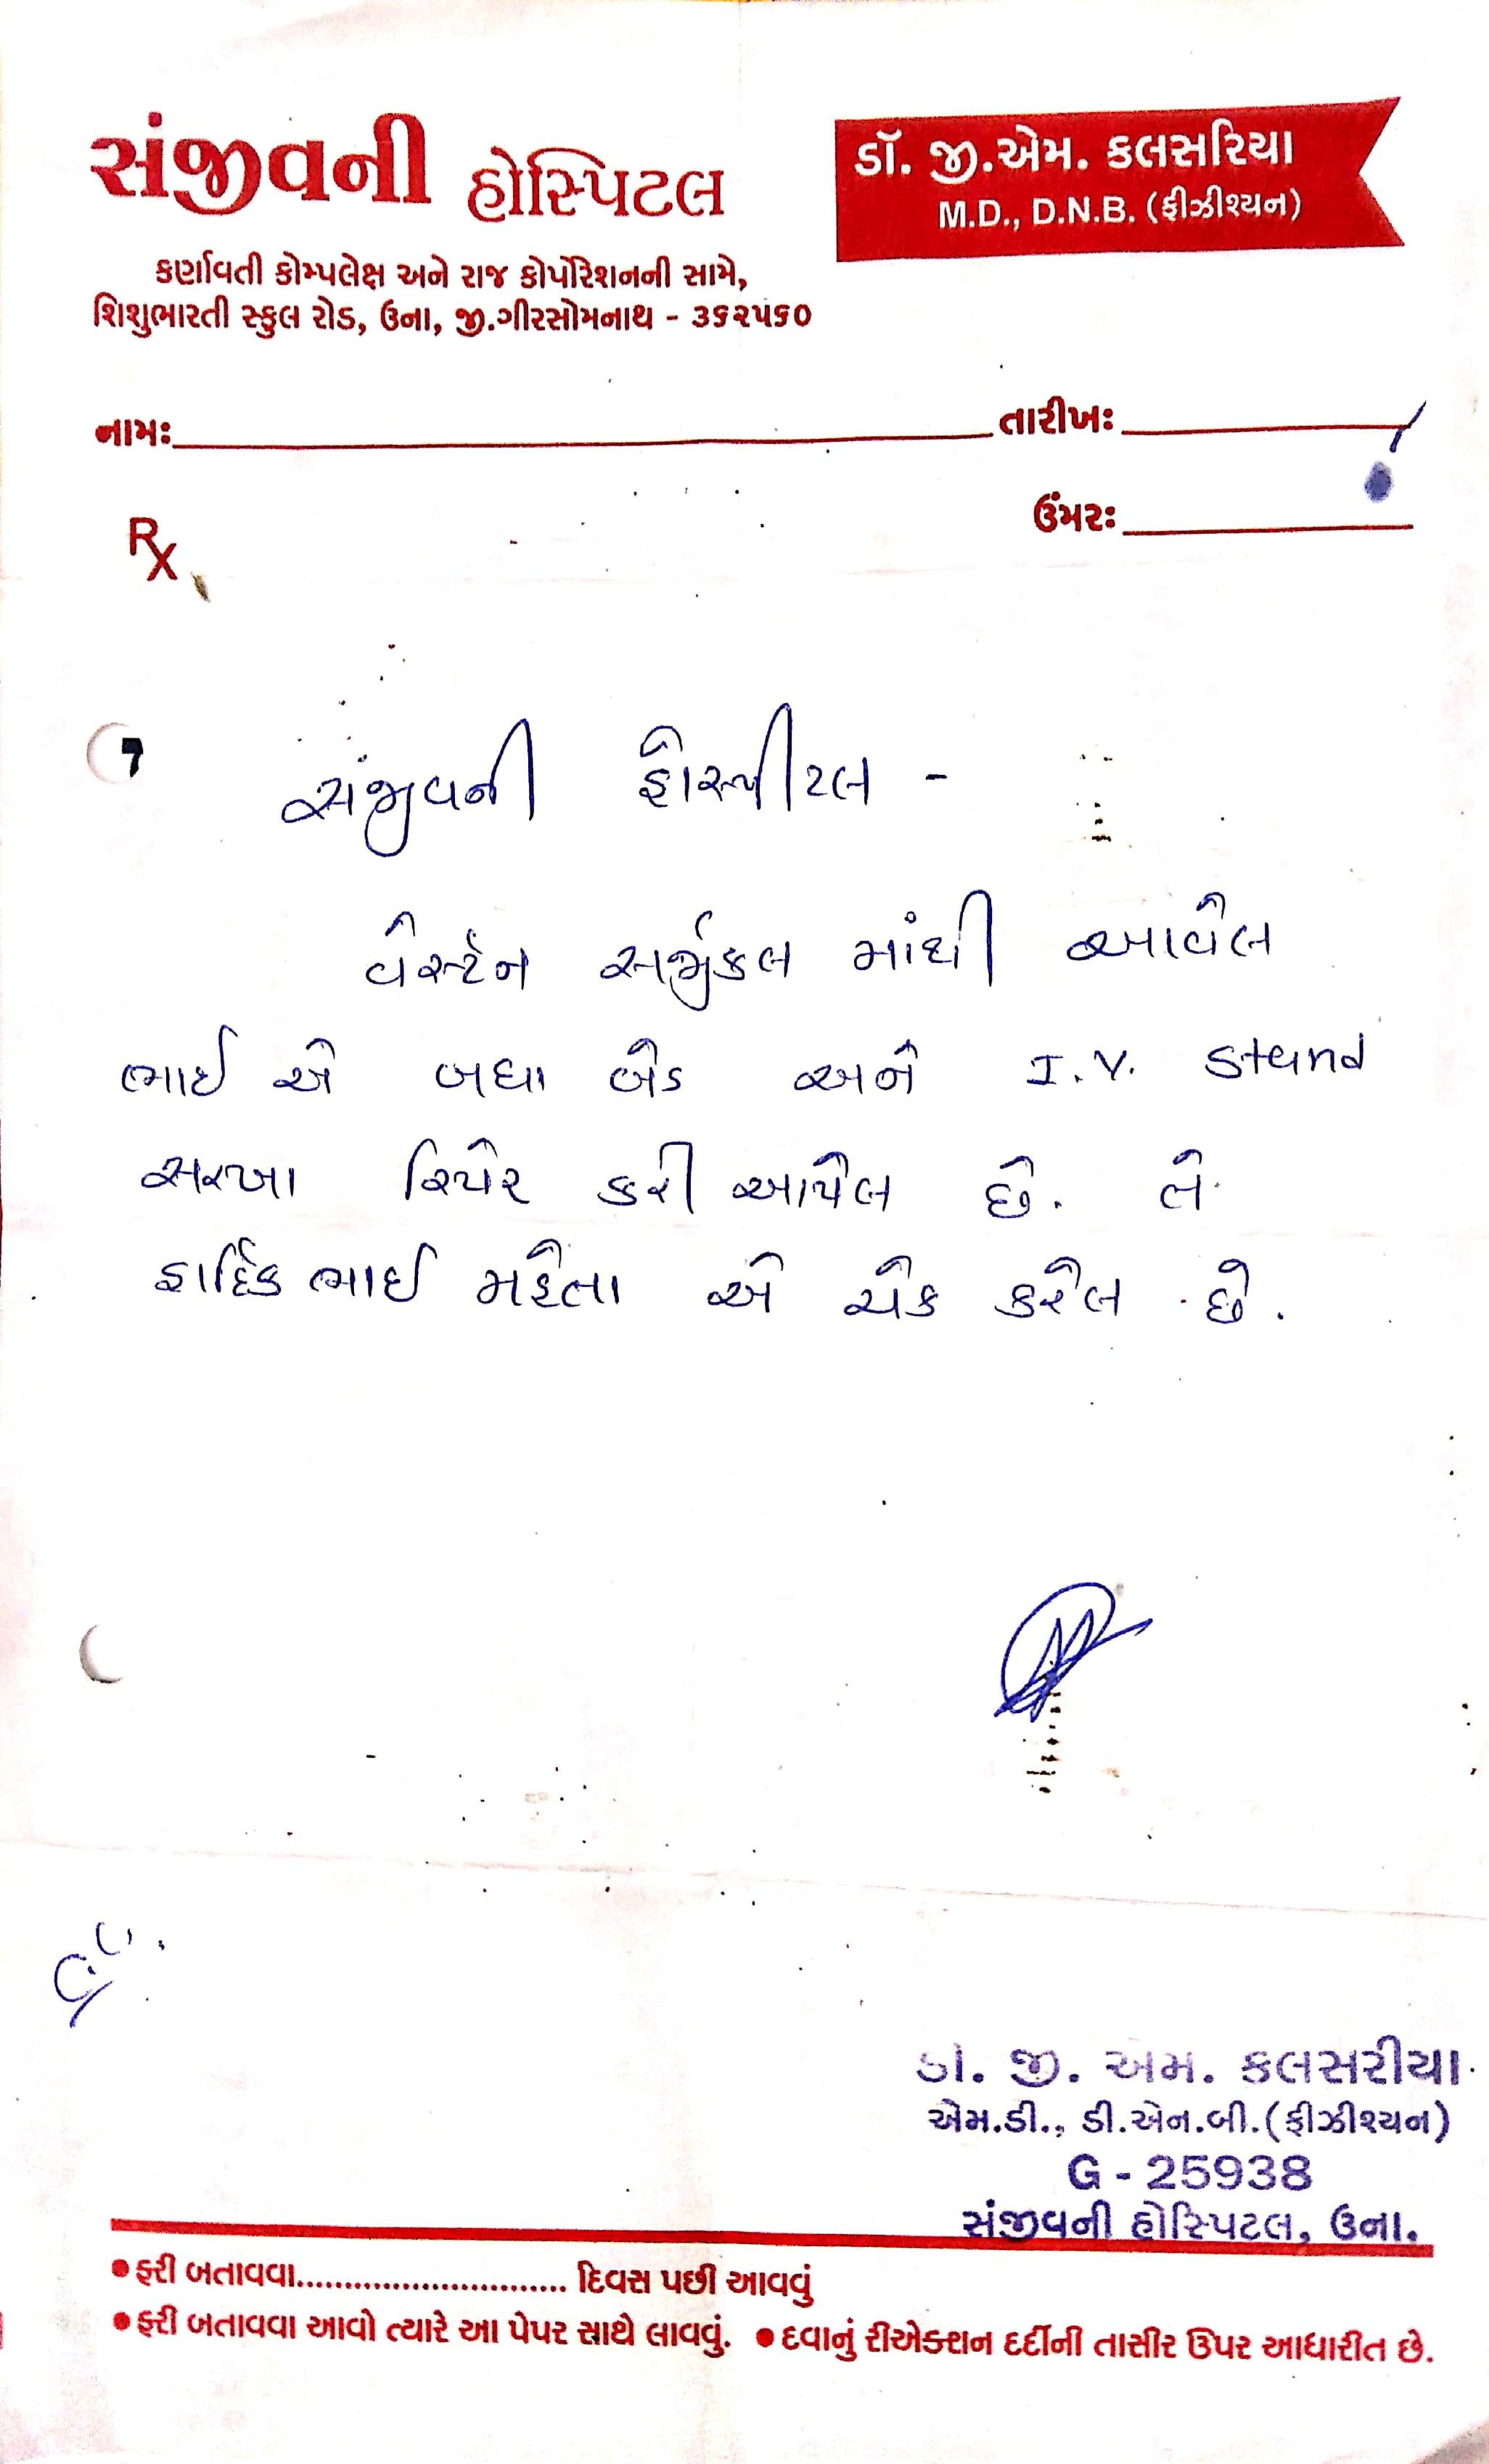 સંજીવની હોસ્પિટલ
ડૉ. જી.એમ. કલસરિયા
M.D., D.N.B. (ફીઝીશ્યન)
કર્ણાવતી કોમ્પલેક્ષ અને રાજ કોર્પોરેશનની સામે,
શિશુભારતી સ્કુલ રોડ, ઉના, જી.ગીરસોમનાથ - ૩૬૨૫૬૦
નામઃ તારીખઃ
ઉંમરઃ
Rx
સંજીવની હોસ્પીટલ -
વેસ્ટર્ન સર્જીકલ માંથી આવેલ
ભાઈ એ બધા બેડ અને I.V. stand
સરખા રિપેર કરી આપેલ છે. તે
હાર્દિક ભાઈ મહેતા એ ચેક કરેલ છે.
ડૉ. જી. એમ. કલસરીયા
એમ.ડી., ડી.એન.બી.(ફીઝીશ્યન)
G - 25938
સંજીવની હોસ્પિટલ, ઉના.
● ફરી બતાવવા............................ દિવસ પછી આવવું
● ફરી બતાવવા આવો ત્યારે આ પેપર સાથે લાવવું. ● દવાનું રીએક્શન દર્દીની તાસીર ઉપર આધારીત છે.